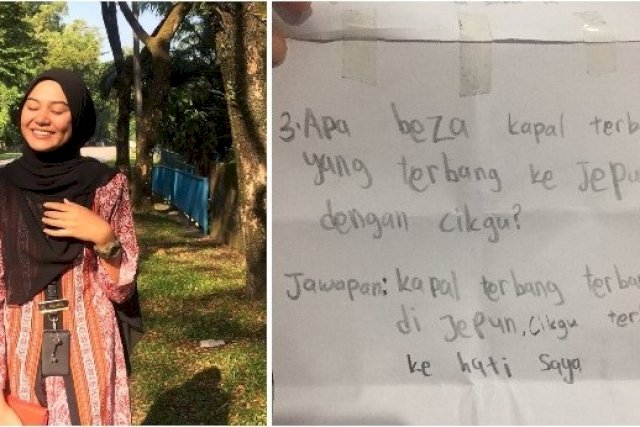 3. Apa beza kapal terb
yang terbang ke Jepu
dengan cikgu?
Jawapan: kapal terbang terba
di Jepun, cikgu ter
ke hati saya